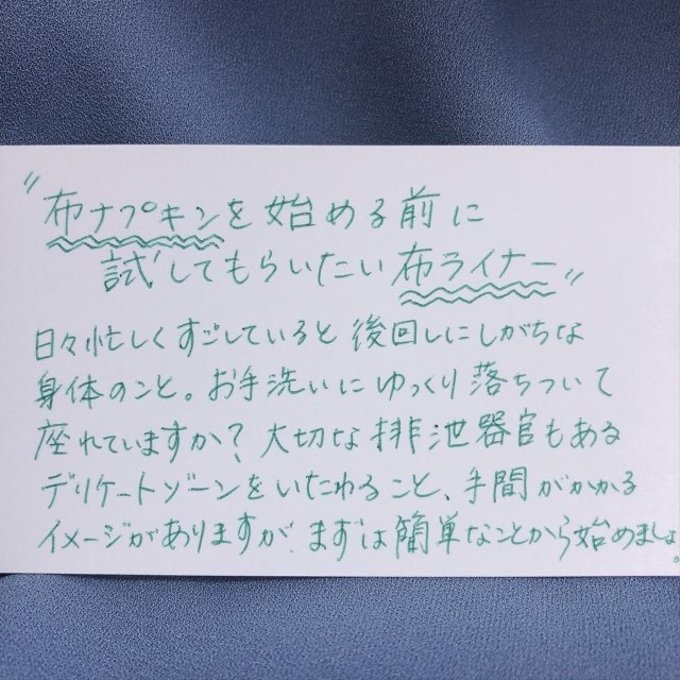 〃布ナプキンを始める前に
試してもらいたい布ライナー〃
日々忙しくすごしていると後回しにしがちな
身体のこと。お手洗いにゆっくり落ちついて
座れていますか？大切な排泄器官もある
デリケートゾーンをいたわること、手間がかかる
イメージがありますが、まずは簡単なことから始めましょ。